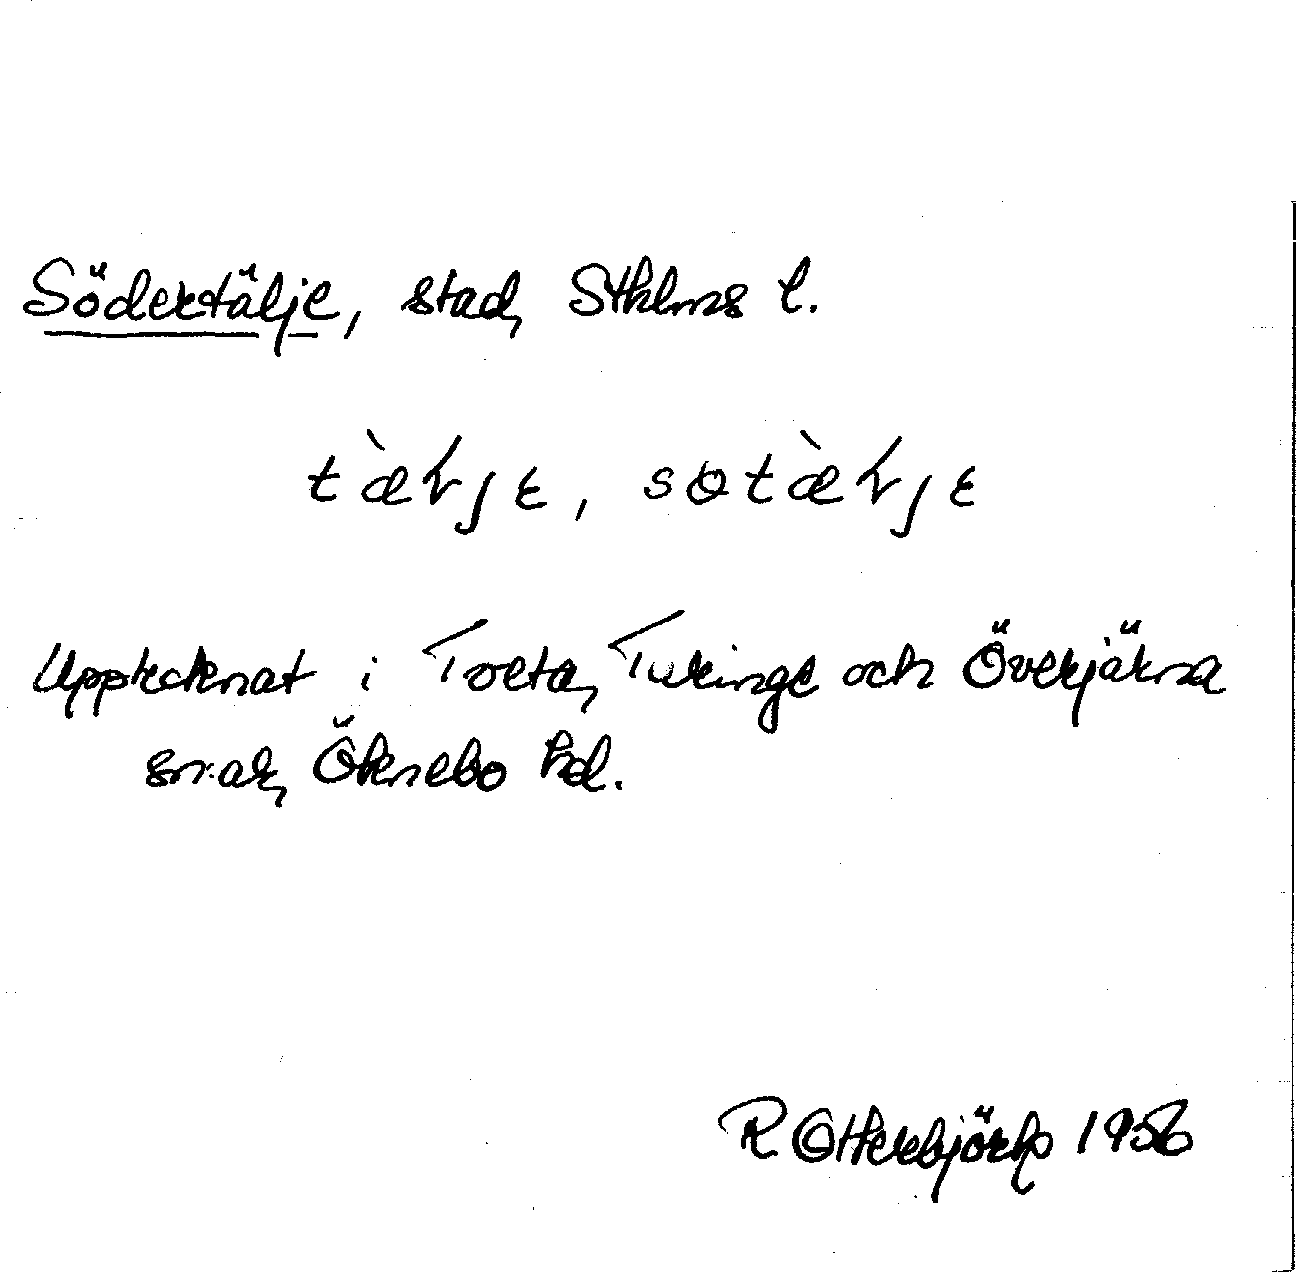 Södertälje, stad, Sthlms l.
tæ̀ƚjɛ, sɵtæ̀ƚjɛ
Upptecknat i Tveta, Turinge och Överjärna
snar, Öknebo hd.
R Otterbjörk 1956